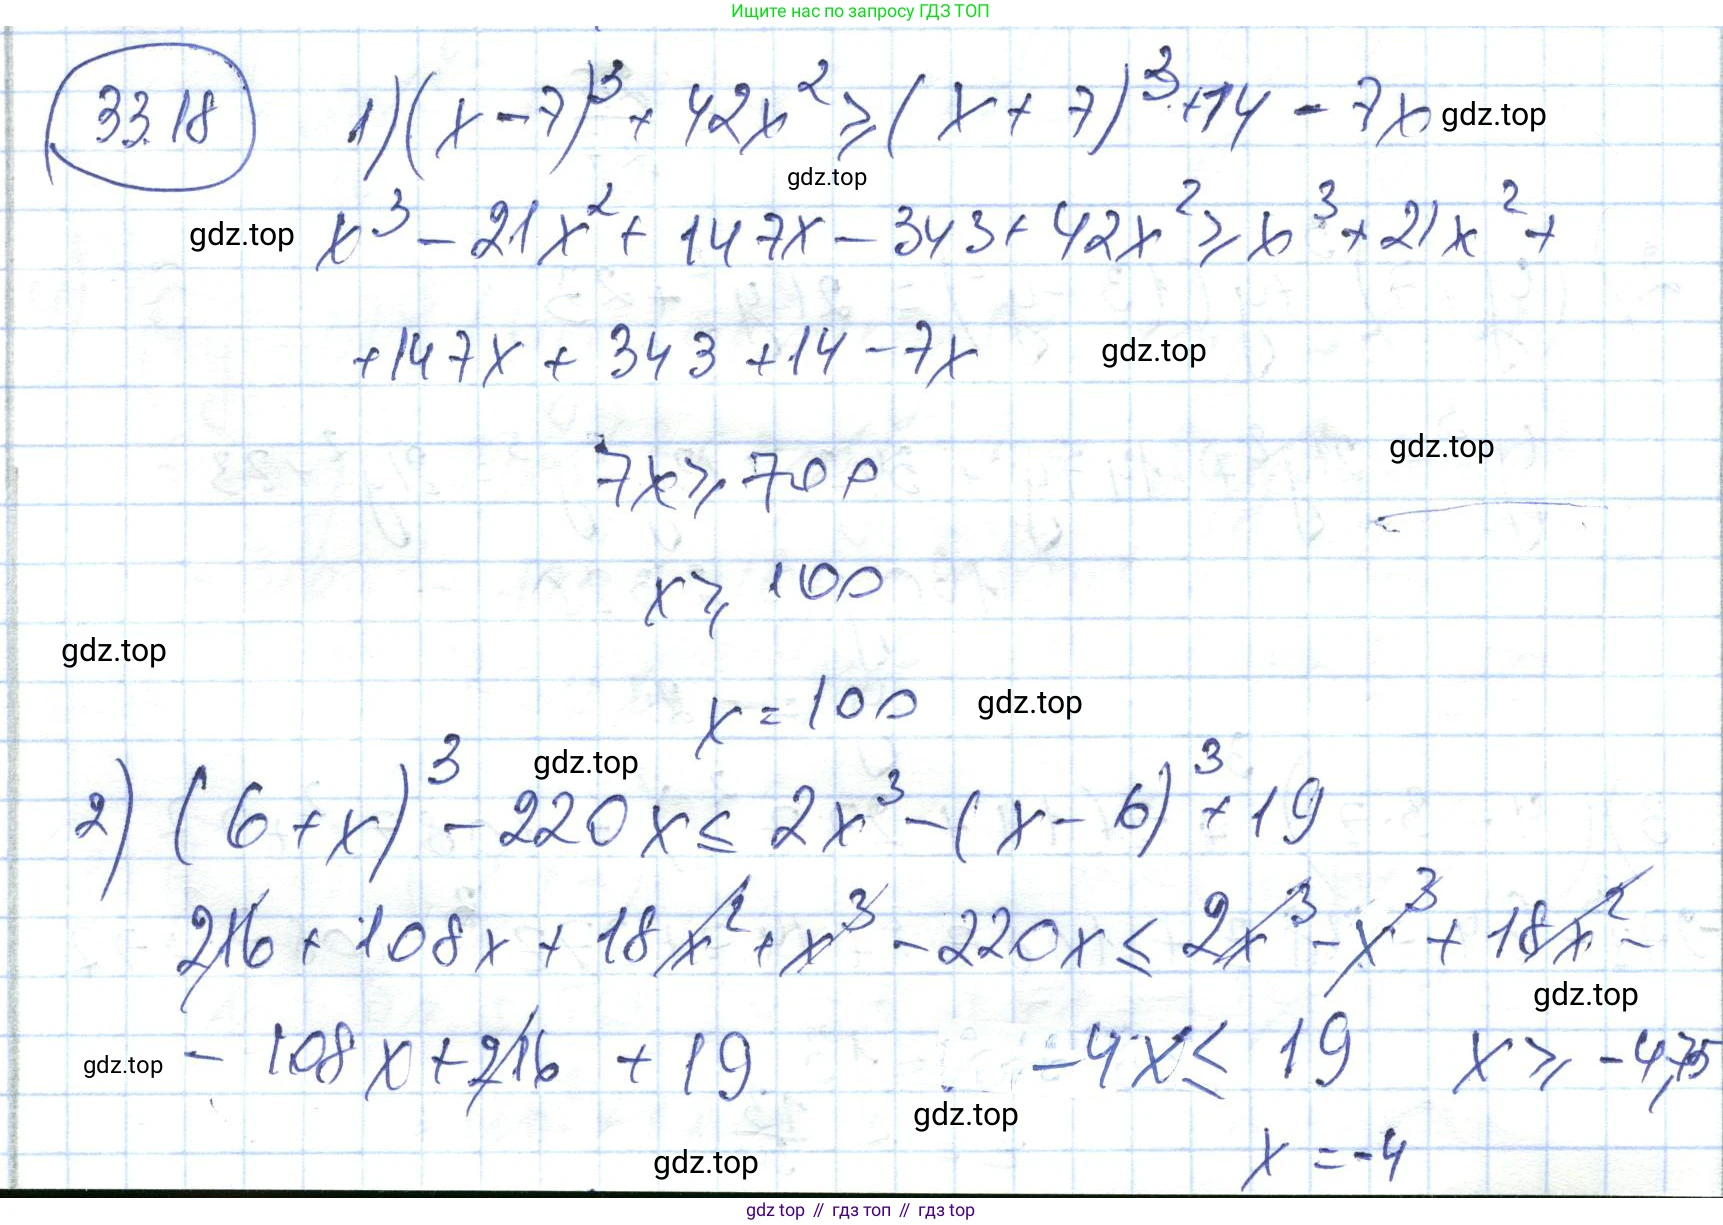 Ищите нас по запросу ГДЗ ТОП
33.18 1) (x - 7)³ + 42x² ⩾ (x + 7)³ + 14 - 7x gdz.top
gdz.top
gdz.top x³ - 21x² + 147x - 343 + 42x² ⩾ x³ + 21x² +
+ 147x + 343 + 14 - 7x gdz.top
gdz.top
7x ⩾ 700
x ⩾ 100
gdz.top
x = 100 gdz.top
gdz.top
2) (6 + x)³ - 220x ⩽ 2x³ - (x - 6)³ + 19
216 + 108x + 18x² + x³ - 220x ⩽ 2x³ - x³ + 18x² -
gdz.top
gdz.top - 108x + 216 + 19 -4x ⩽ 19 x ⩾ -4,75
gdz.top
gdz.top x = -4
gdz top // гдз топ // гдз top